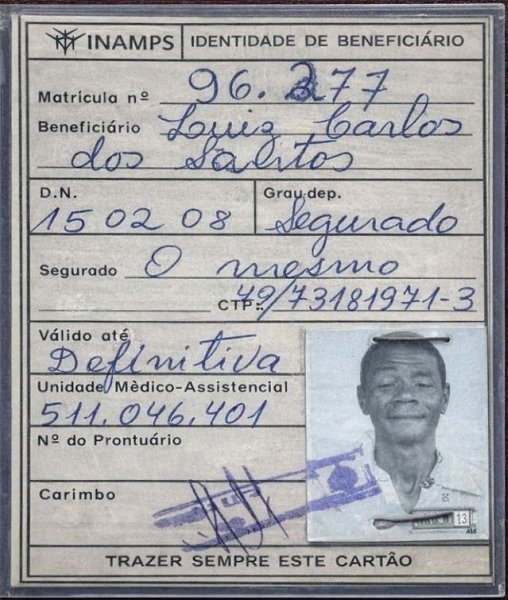 INAMPS IDENTIDADE DE BENEFICIÁRIO
Matricula nº 96.277
Beneficiário Luiz Carlos
dos Santos
D.N. Grau dep.
15 02 08 Segurado
Segurado O mesmo
CTP.: 49/73181971-3
Válido até
Definitiva
Unidade Mèdico-Assistencial
511.046.401
Nº do Prontuário
Carimbo
13
TRAZER SEMPRE ESTE CARTÃO